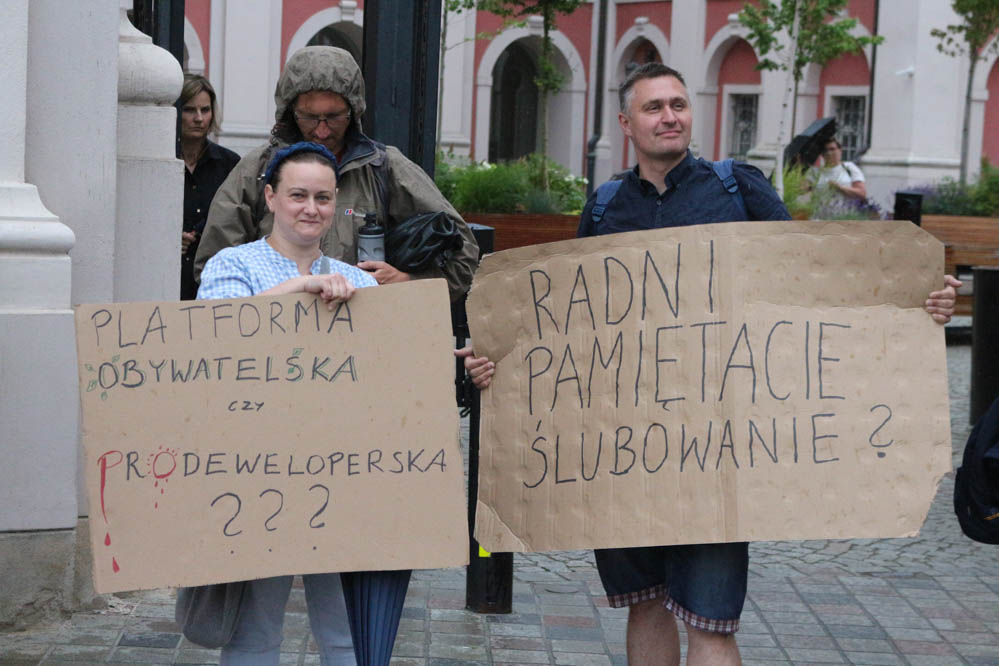 PLATFORMA
OBYWATELSKA
CZY
PRODEWELOPERSKA
???
RADNI
PAMIĘTACIE
ŚLUBOWANIE?